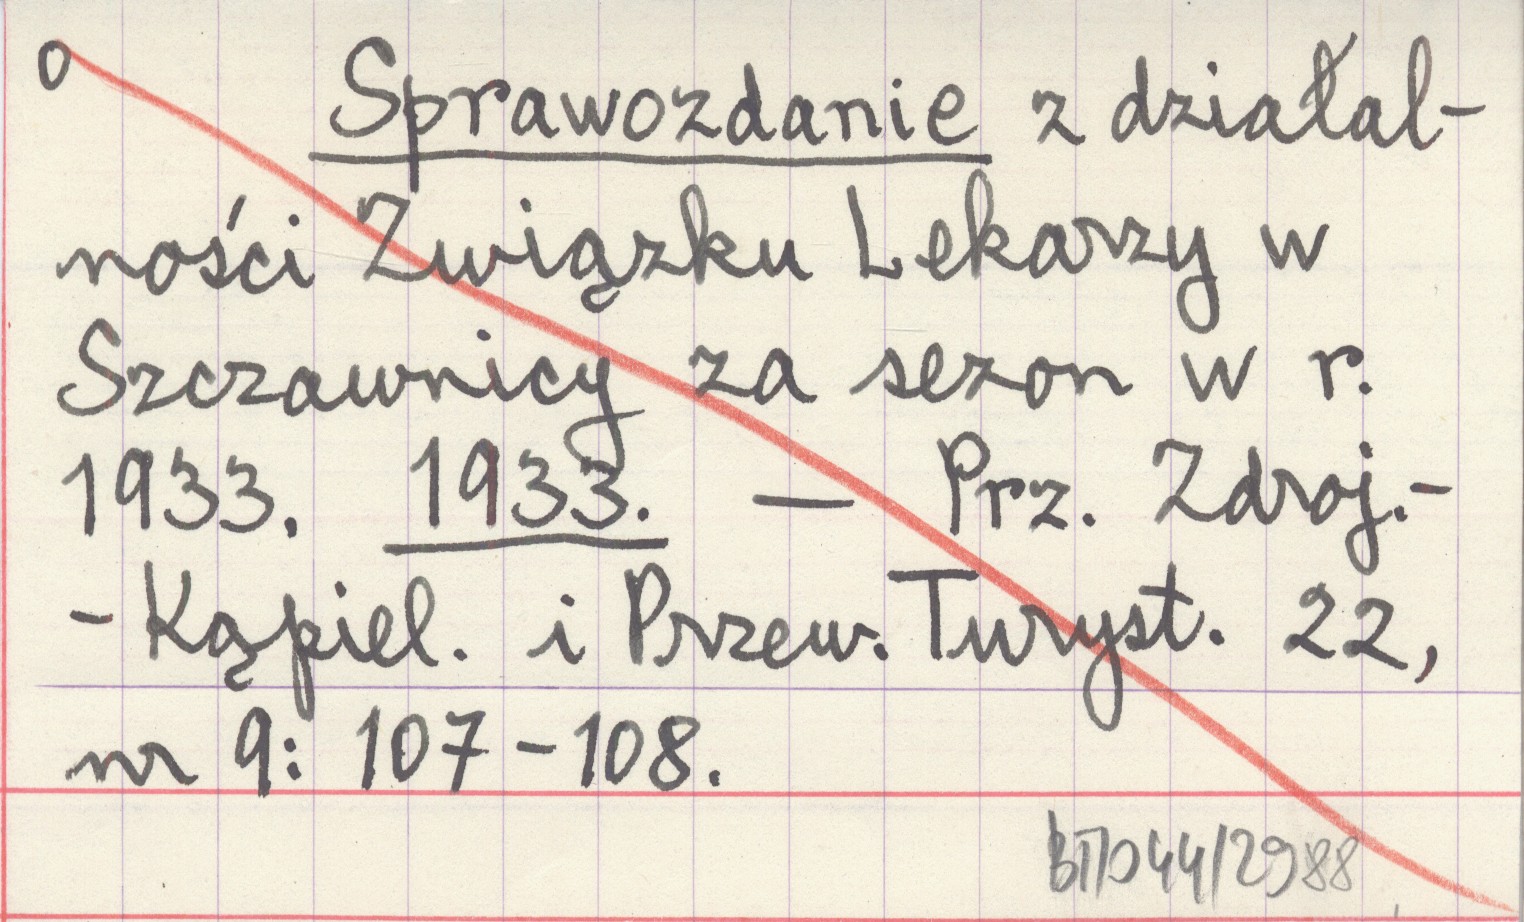 o Sprawozdanie z działal-
ności Związku Lekarzy w
Szczawnicy za sezon w r.
1933. 1933. — Prz. Zdroj.-
-Kąpiel. i Przew. Turyst. 22,
nr 9: 107-108.